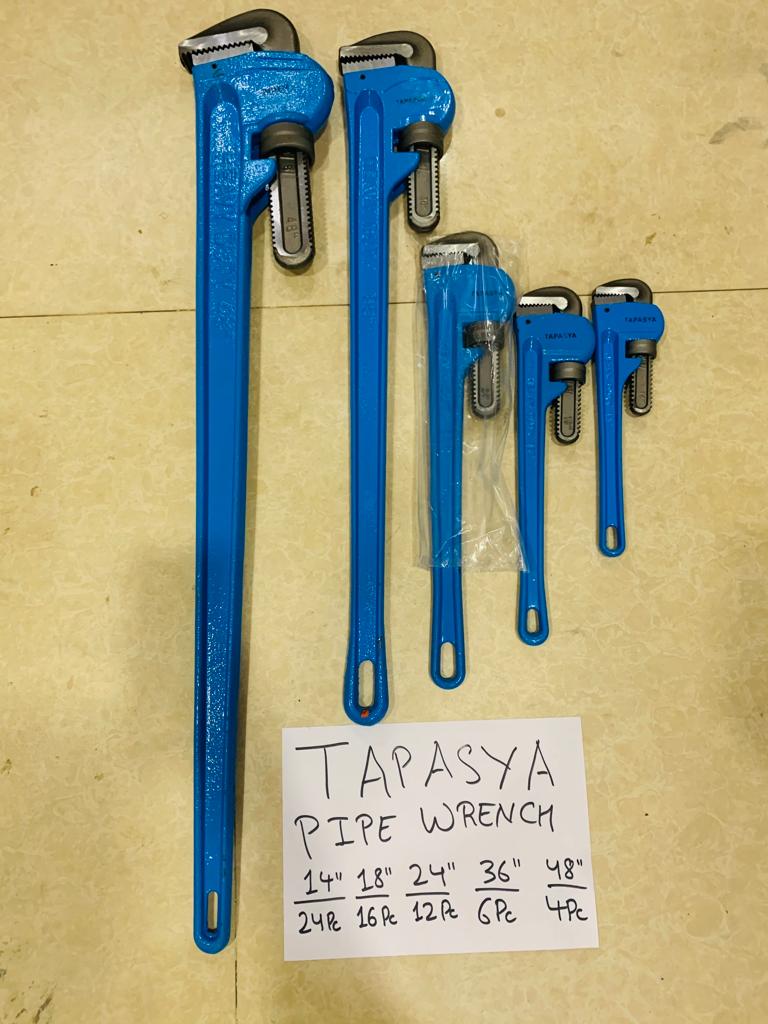 48"
TAPASYA
TAPASYA
TAPASYA
TAPASYA
PIPE WRENCH
14" 18" 24" 36" 48"
24Pc 16Pc 12Pc 6Pc 4Pc